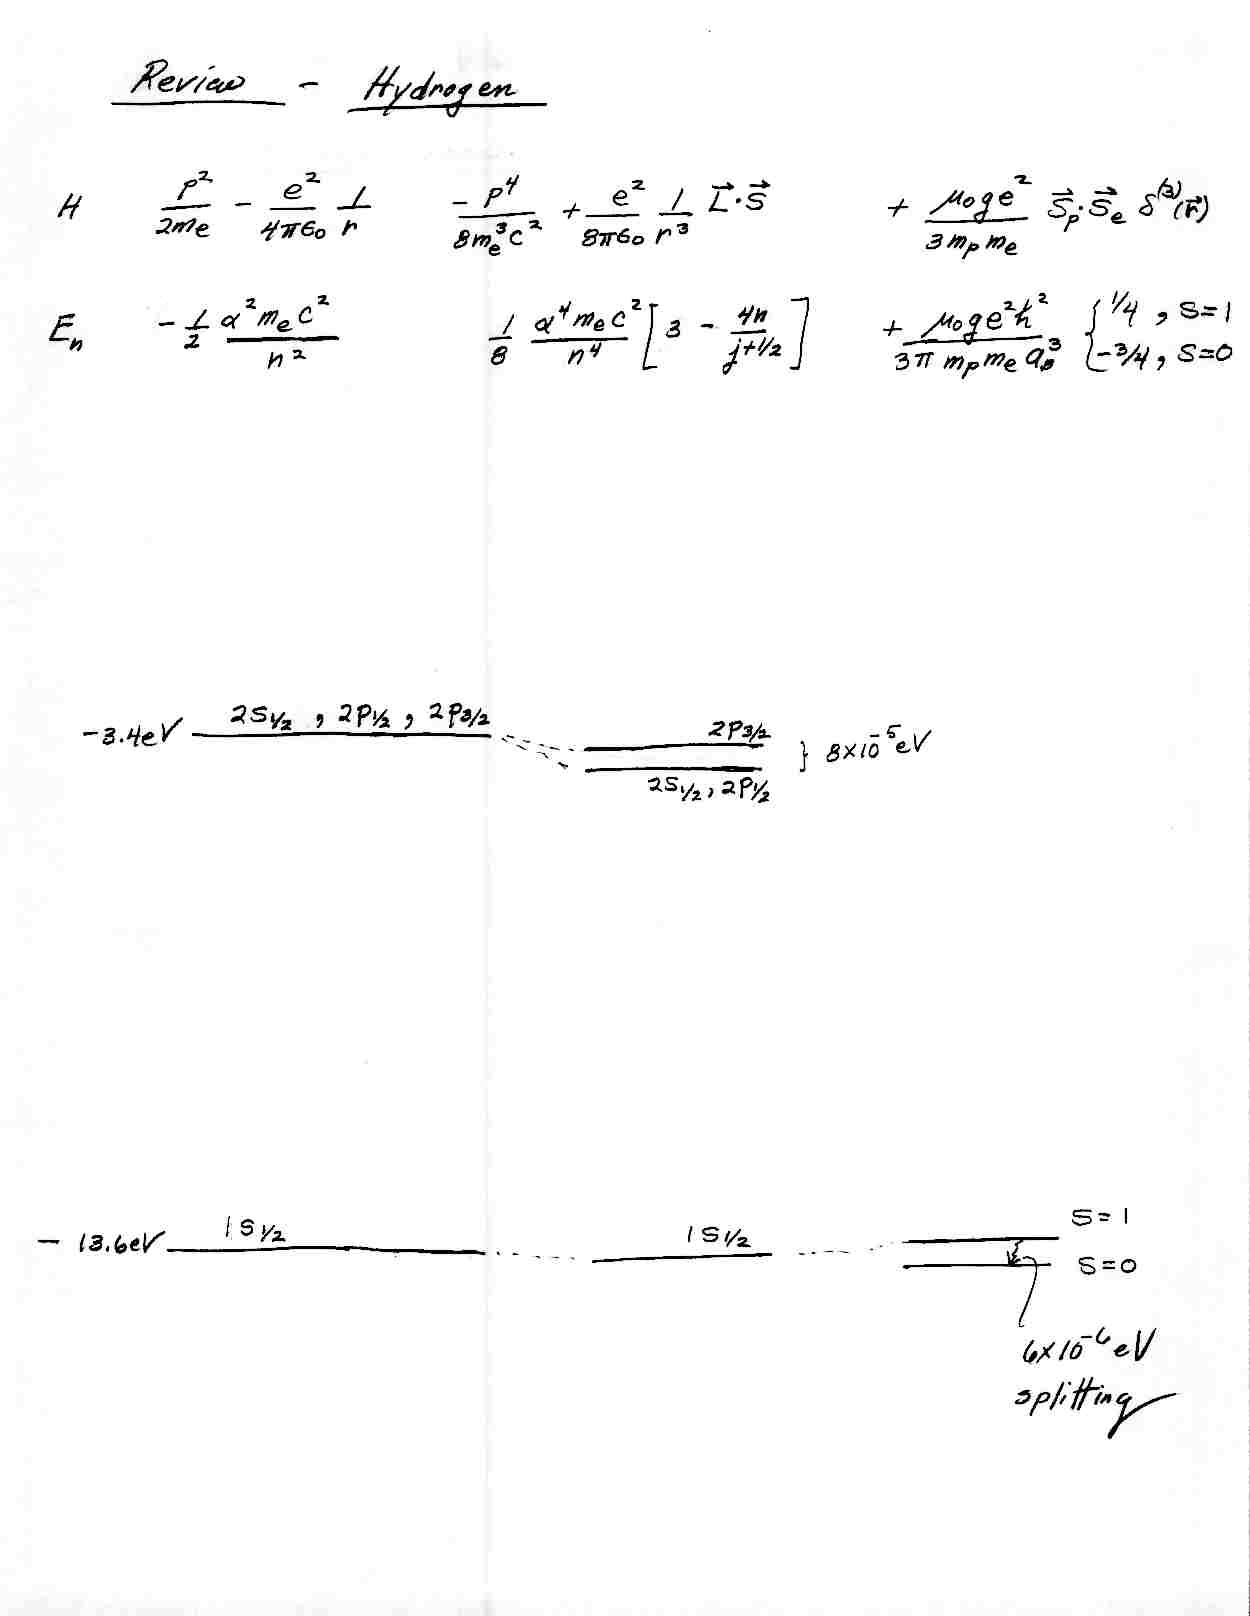 Review - Hydrogen
H p²/2mₑ - e²/4πϵ₀ 1/r -p⁴/8mₑ³c² + e²/8πϵ₀ 1/r³ L⃗·S⃗ + μ₀ge²/3mₚmₑ S⃗ₚ·S⃗ₑ δ⁽³⁾(r⃗)
Eₙ -1/2 α²mₑc²/n² 1/8 α⁴mₑc²/n⁴ [3 - 4n/j+1/2] + μ₀ge²ħ²/3π mₚmₑa₀³ { 1/4, S=1
-3/4, S=0
-3.4eV 2S1/2, 2P1/2, 2P3/2 2P3/2 } 8×10⁻⁵eV
2S1/2, 2P1/2
- 13.6eV 1S1/2 1S1/2 S=1
S=0
6×10⁻⁶ eV
splitting